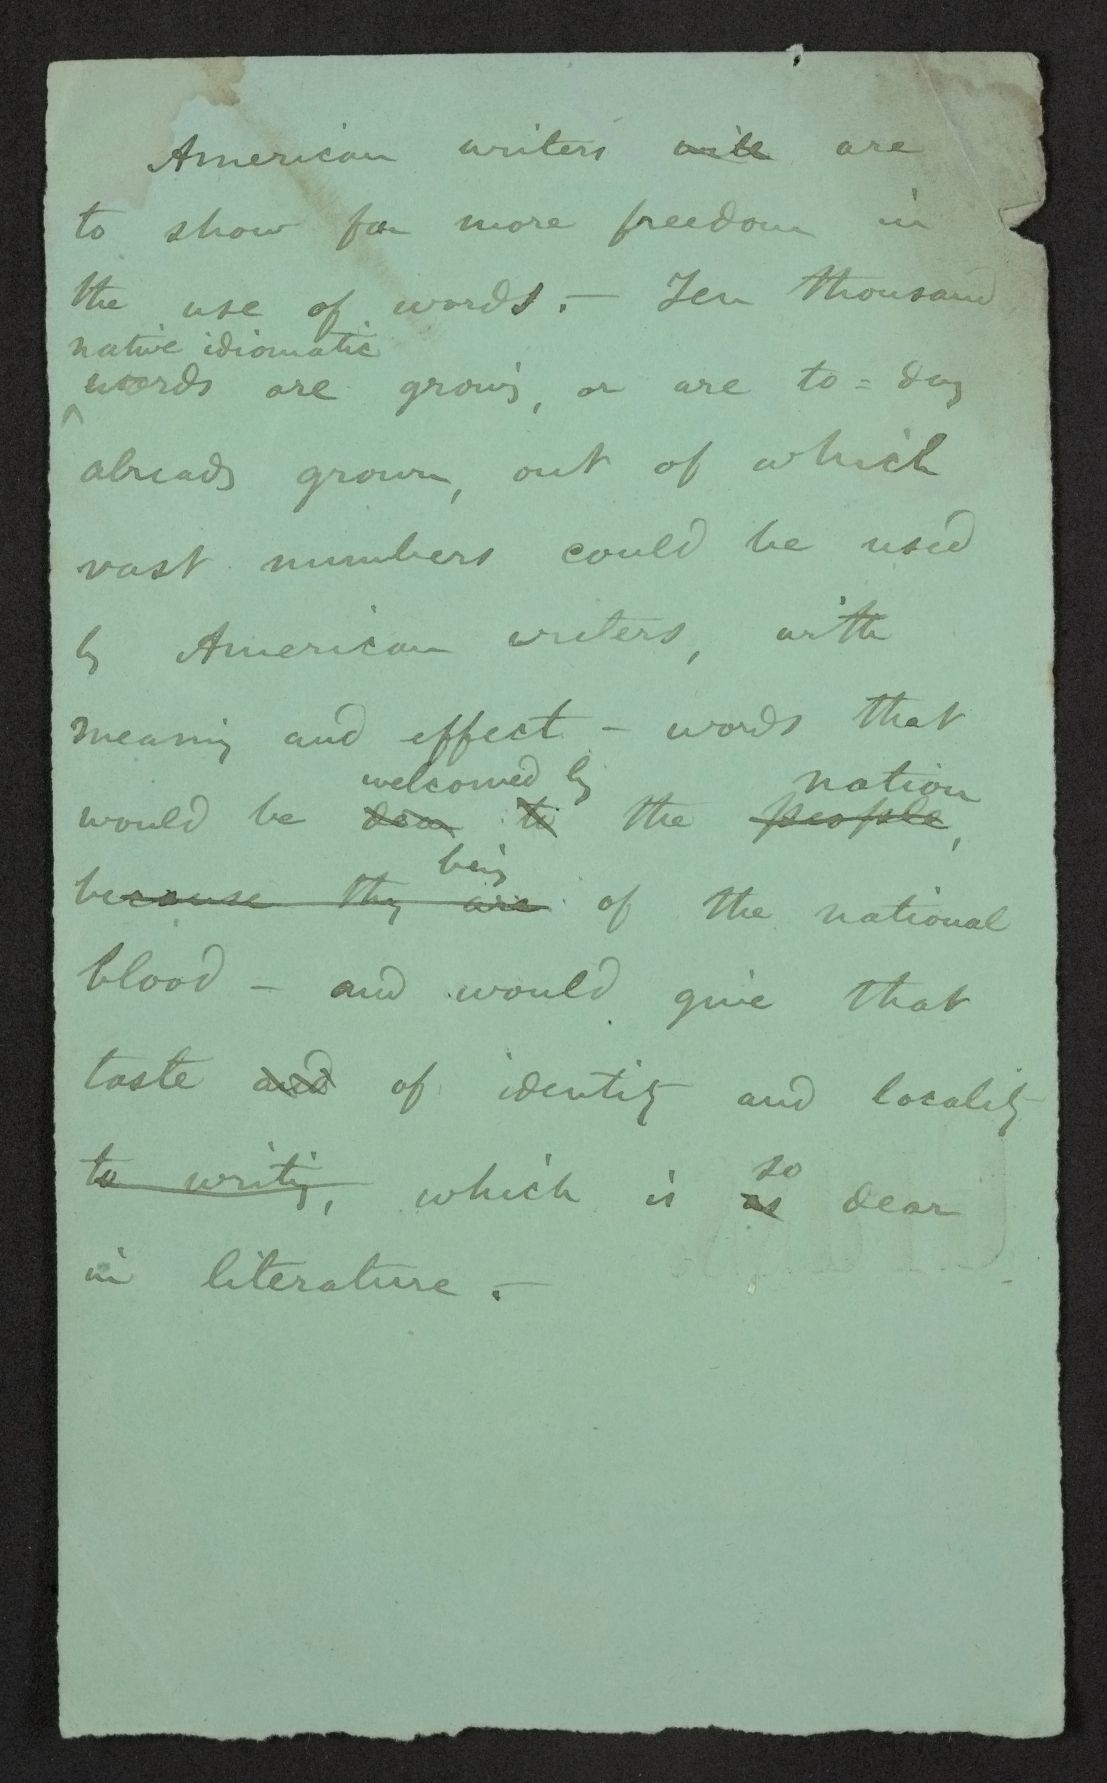 American writers will are
to show far more freedom in
the use of words.— Ten thousand
native idiomatic
^words are growing, or are to=day
already grown, out of which
vast numbers could be used
by American writers, with
meaning and effect – words that
welcomed by nation
would be dear to the people,
being
because they are of the national
blood – and would give that
taste and of identity and locality
so
to writing, which is as dear
in literature.—